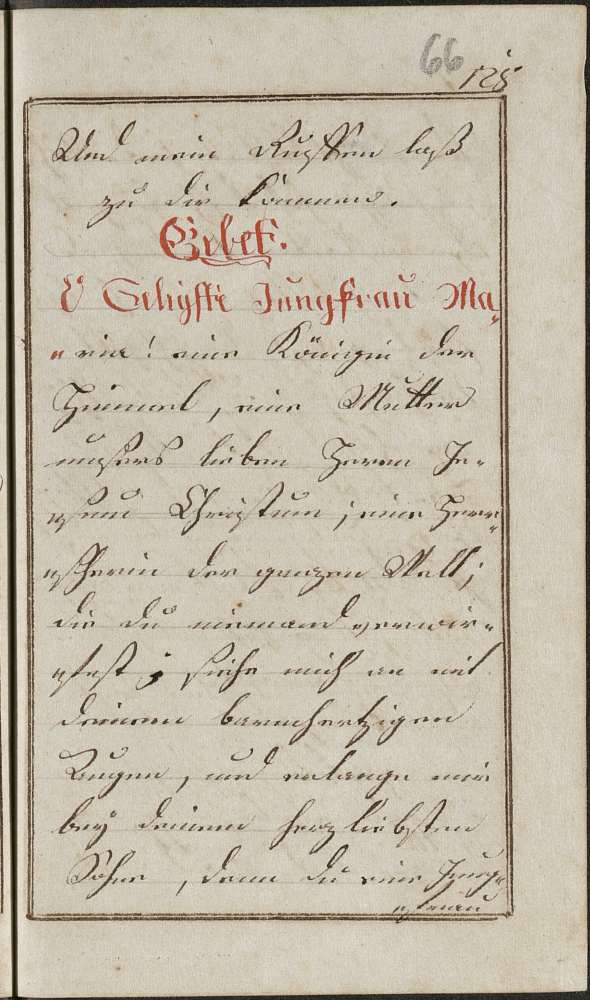 66
125
Und mein Ruffen laß
zu dir kommen.
Gebet.
O Seligste Jungfrau Ma„
„ria! eine Königin der
Himmel, eine Mutter
unsers lieben Herrn Je„
sum Christum; eine Herr„
scherin der ganzen Welt;
die du niemand verwir„
fest; siehe mich an mit
deinem barmhertzigen
Augen, und erlange mir
bey deinem herzliebsten
Sohne, denn du eine Jung„
frau